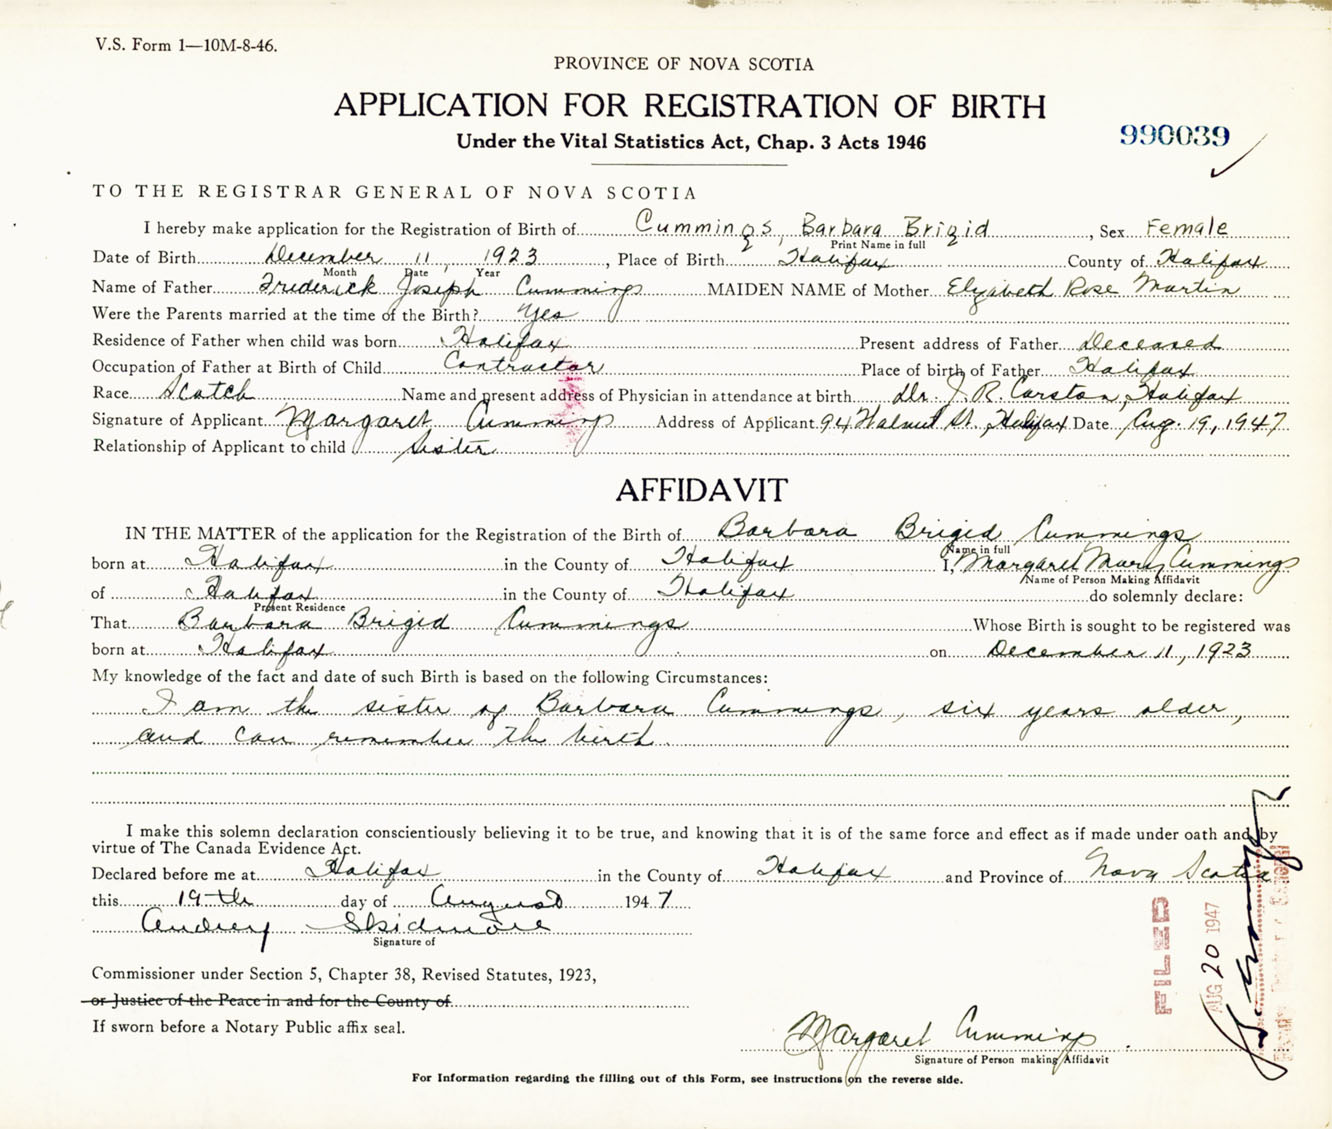 V.S. Form 1—10M-8-46.
PROVINCE OF NOVA SCOTIA
APPLICATION FOR REGISTRATION OF BIRTH
Under the Vital Statistics Act, Chap. 3 Acts 1946
990039
TO THE REGISTRAR GENERAL OF NOVA SCOTIA
I hereby make application for the Registration of Birth of Cummings, Barbara Brigid, Sex Female
Print Name in full
Date of Birth December 11, 1923, Place of Birth Halifax County of Halifax
Month Date Year
Name of Father Frederick Joseph Cummings MAIDEN NAME of Mother Elizabeth Rose Martin
Were the Parents married at the time of the Birth? Yes
Residence of Father when child was born Halifax Present address of Father Deceased
Occupation of Father at Birth of Child Contractor Place of birth of Father Halifax
Race Scotch Name and present address of Physician in attendance at birth Dr. J. R. Corston, Halifax
Signature of Applicant Margaret Cummings Address of Applicant 94 Walnut St., Halifax Date Aug. 19, 1947
Relationship of Applicant to child Sister
AFFIDAVIT
IN THE MATTER of the application for the Registration of the Birth of Barbara Brigid Cummings
Name in full
born at Halifax in the County of Halifax I, Margaret Mary Cummings
Name of Person Making Affidavit
of Halifax in the County of Halifax do solemnly declare:
Present Residence
That Barbara Brigid Cummings Whose Birth is sought to be registered was
born at Halifax on December 11, 1923
My knowledge of the fact and date of such Birth is based on the following Circumstances:
I am the sister of Barbara Cummings, six years older,
and can remember the birth.
I make this solemn declaration conscientiously believing it to be true, and knowing that it is of the same force and effect as if made under oath and by
virtue of The Canada Evidence Act.
Declared before me at Halifax in the County of Halifax and Province of Nova Scotia
this 19th day of August 1947
Audrey Skidmore
Signature of
Commissioner under Section 5, Chapter 38, Revised Statutes, 1923,
or Justice of the Peace in and for the County of
If sworn before a Notary Public affix seal.
FILED
AUG 20 1947
Margaret Cummings
Signature of Person making Affidavit
For Information regarding the filling out of this Form, see instructions on the reverse side.